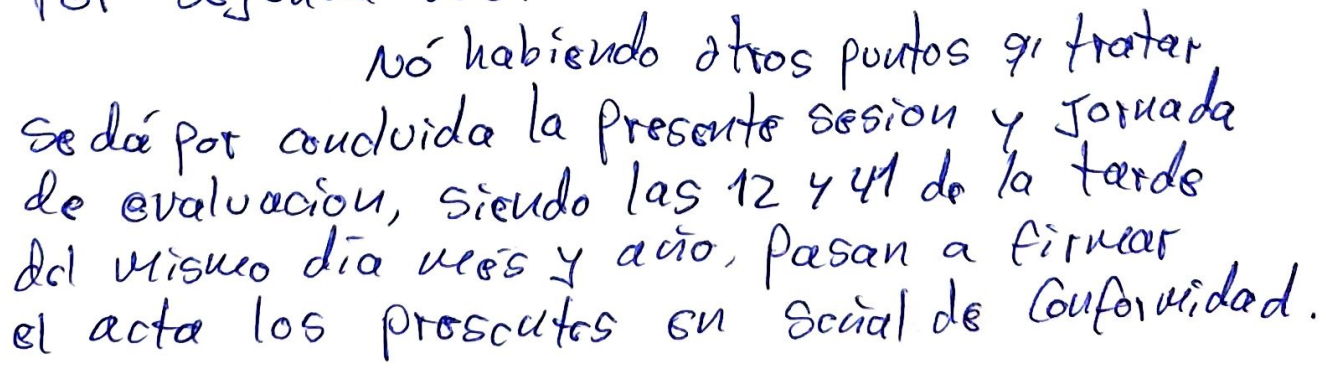 Nó habiendo otros puntos q' tratar,
se dá por concluida la presente sesion y Jornada
de evaluación, siendo las 12 y 41 de la tarde
del mismo día més y año, Pasan a firmar
el acta los presentes en señal de Conformidad.